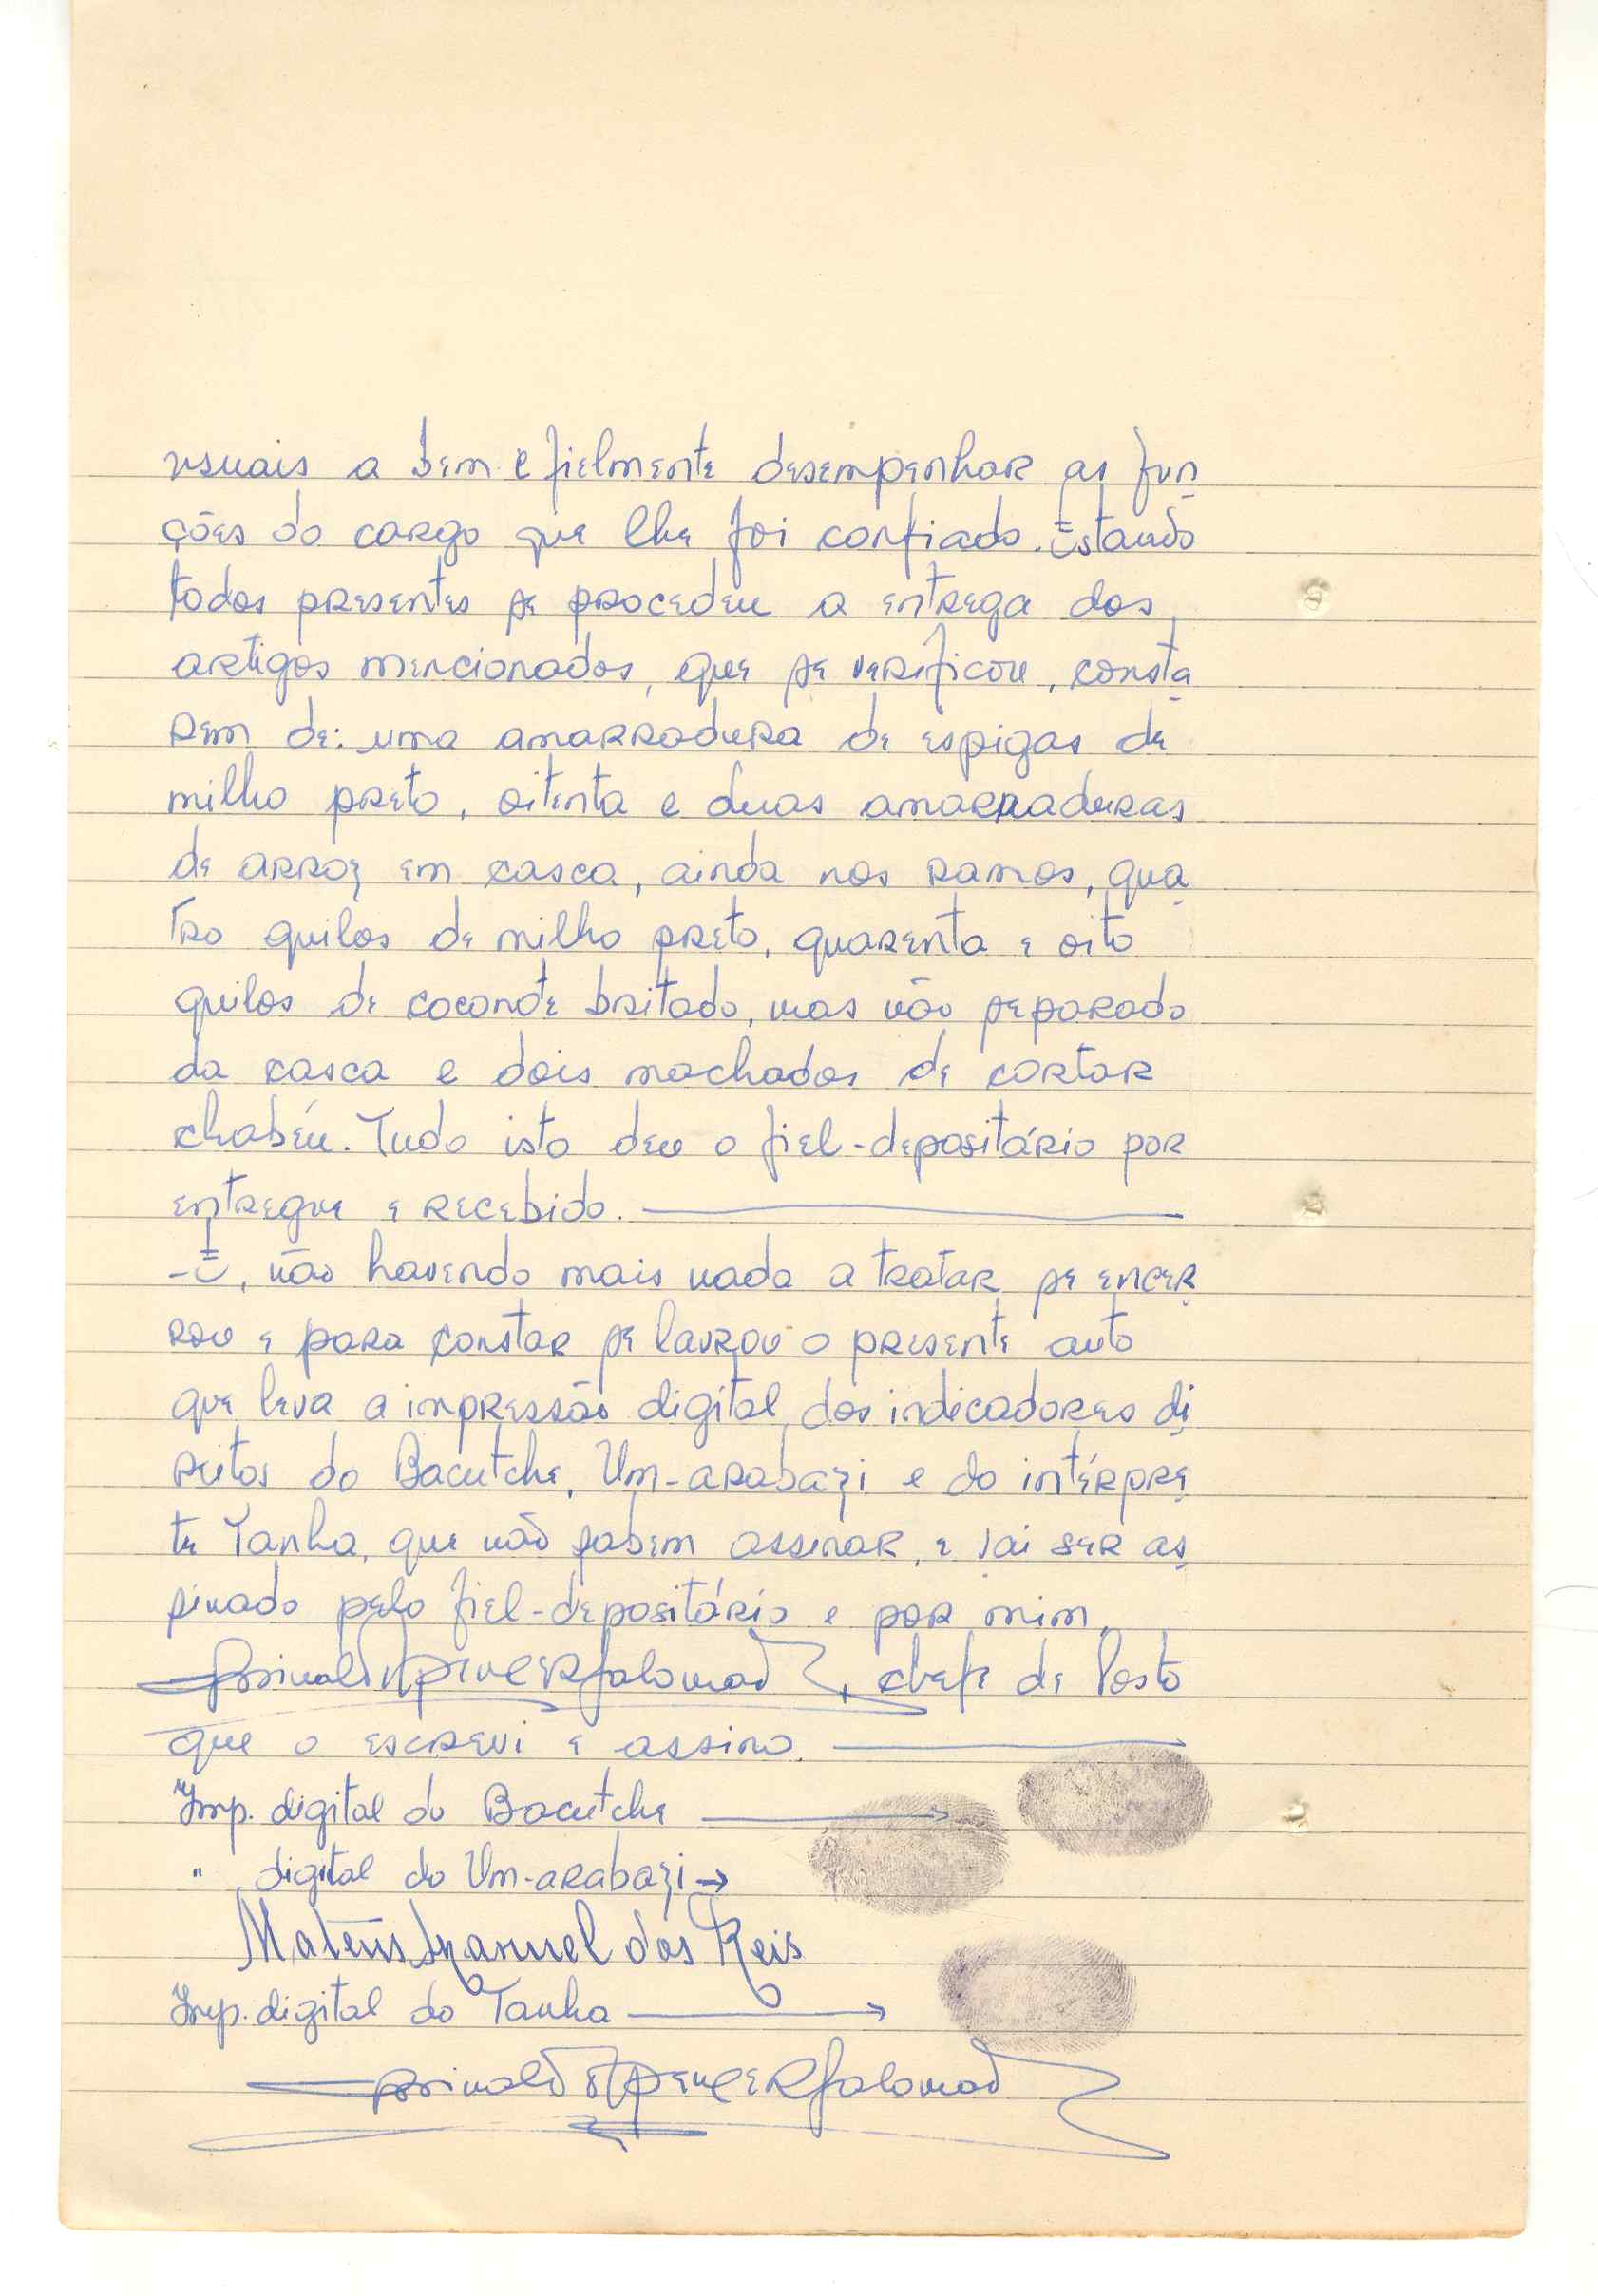 usuais a bem e fielmente desempenhar as fun
ções do cargo que lhe foi confiado. Estando
todos presentes se procedeu a entrega dos
artigos mencionados, que se verificou, consta
rem de: uma amarradura de espigas de
milho preto, oitenta e duas amarraduras
de arroz em casca, ainda nos ramos, qua
tro quilos de milho preto, quarenta e oito
quilos de coconote britado, mas não separado
da casca e dois machados de cortar
chabéu. Tudo isto deu o fiel-depositário por
entregue e recebido.
-E, não havendo mais nada a tratar se encer
rou e para constar se lavrou o presente auto
que leva a impressão digital dos indicadores di
reitos do Bacutche, Um-arabazi e do intérpre
te Tanha, que não sabem assinar, e vai ser as
sinado pelo fiel-depositário e por mim,
Salomão, chefe de Posto
que o escrevi e assino.
Imp. digital do Bacutche
" digital do Um-arabazi
Mateus Manuel dos Reis
Imp. digital do Tanha
Salomão